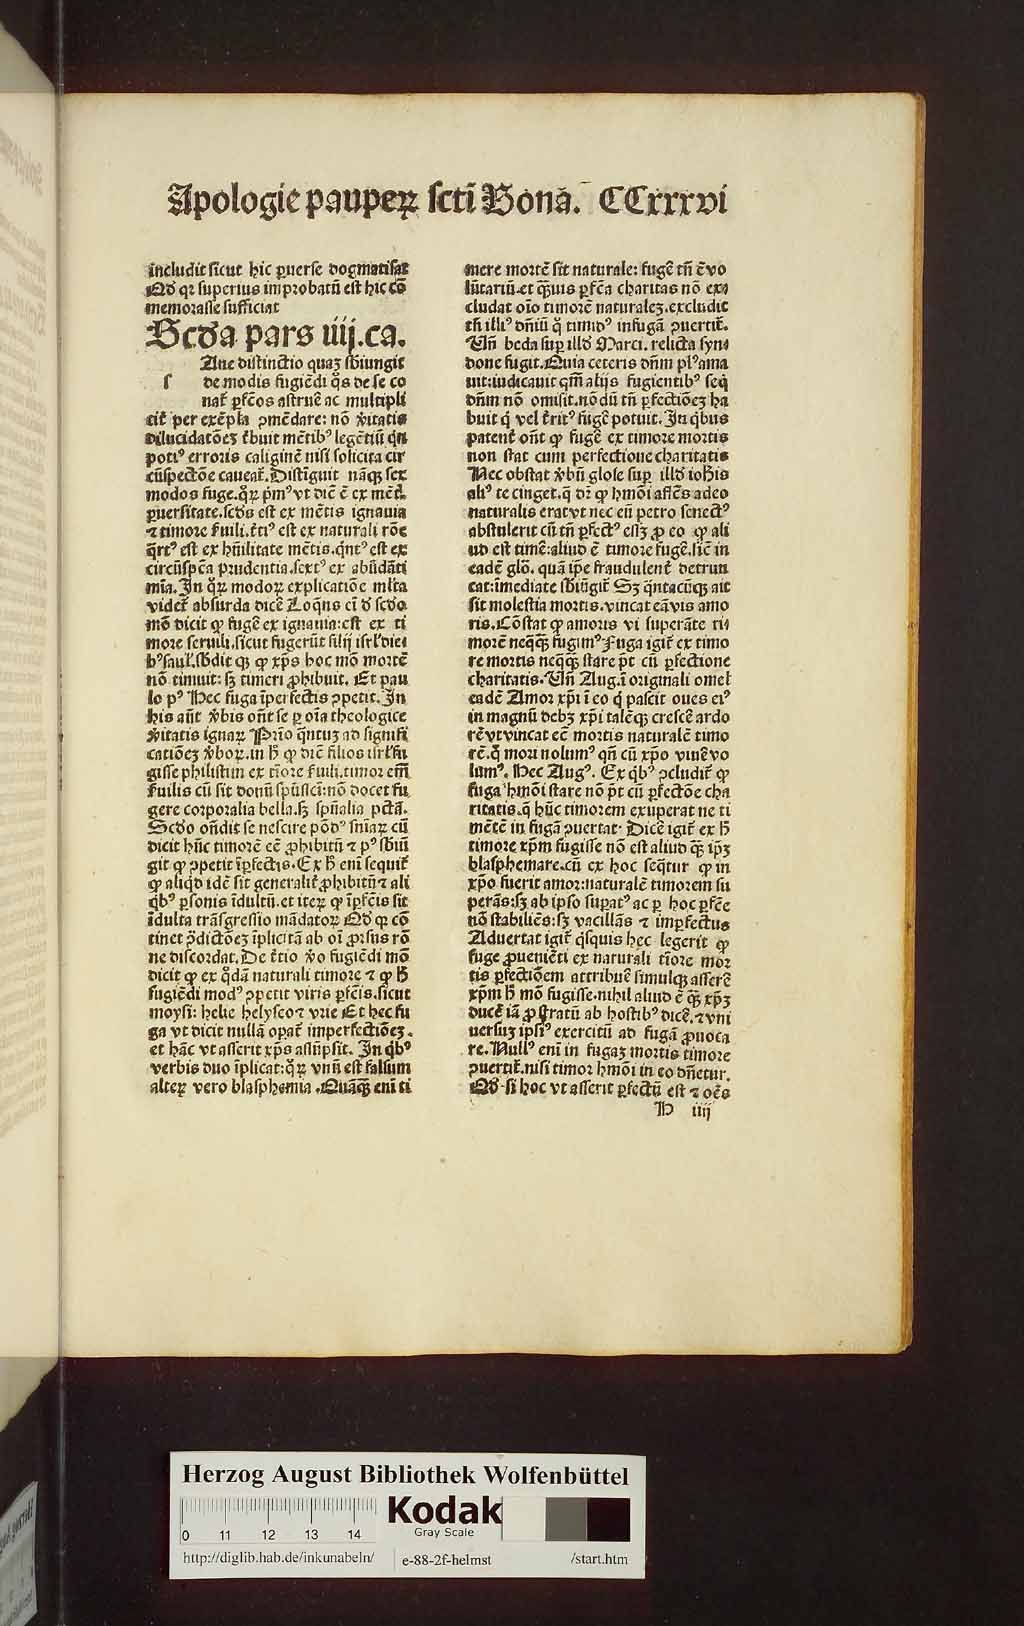 Apologie pauperꝝ scti Bonā. CCxxxvi
includit sicut hic ꝑuerse dogmatisat
Qď qꝛ superius improbatū est hic cō
memorasse sufficiat
Scďa pars iiij.ca.
Ane distinctio quaꝫ sbiungit
s de modis fugiēdi qͦs de se co
nat᷑ ꝑfcōs astruē ac multipli
cit᷑ per exēpla ꝯmēdare: nō v̓itatis
dilucidatōeꝫ t̓buit mētibꝰ legētiū qͥn
potiꝰ erroris caliginē nisi solicita cir
cūspectōe caueat᷑. Distīguit nāqꝫ sex
modos fuge. qͦꝝ pͥmꝰ vt dic̄ ē ex mēt᷑.
ꝑuersitate. scďs est ex mētis ignauia
⁊ timore s̓uili. t̓tiꝰ est ex naturali rōe
qͣrtꝰ est ex hūilitate mētis. qͥntꝰ est ex
circūspcā prudentia. sextꝰ ex abūdāti
mīa. In qͦꝝ modoꝝ explicatiōe mlta
videt᷑ absurda dicē Loqͥns eī ď scďo
mō dicit ꝙ fugē ex ignauia: est ex ti
more seruili. sicut fugerūt filij isrl̓ diei
bꝰ saul̓. sb̄dit qꝫ ꝙ xp̄s hoc mō mortē
nō timuit: sꝫ timeri ꝓhibuit. Et pau
lo pꝰ Hec fuga īperfectis ꝯpetit. In
his aūt v̓bis on̄t se ꝑ oīa theologice
v̓itatis ignaꝝ Prīo qͥntuꝫ ad signifi
catiōeꝫ v̓boꝝ. in h̄ ꝙ dic̄ filios isrl̓ fu
gisse philistiim ex tīore s̓uili. timor em̄
s̓uilis cū sit donū sp̄ūssci: nō docet fu
gere corporalia bella. sꝫ spūalia pctā.
Scďo on̄dit se nescire pōdꝰ sniaꝝ cū
dicit hūc timorē eē ꝓhibitū ⁊ pꝰ sbiū
git ꝙ ꝯpetit īꝑfectis. Ex h̄ enī sequit᷑
ꝙ aliqͥd idē sit generalit᷑ ꝓhibitū ⁊ ali
qͥbꝰ ꝑsonis īdultū. et iteꝝ ꝙ īꝑfcīs sit
īdulta trāsgressio mādatoꝝ Qď qꝫ cō
tinet p̄dictōeꝫ īplicitā ab oī ꝓrsus rō
ne discordat. De t̓tio v̓o fugiēdi mō
dicit ꝙ ex qͣdā naturali timore ⁊ ꝙ h̄
fugiēdi modꝰ ꝯpetit viris ꝑfcīs. sicut
moysi: helie helyseo ⁊ vrie Et hec fu
ga vt dicit nullā oꝑat᷑ imperfectiōeꝫ.
et hāc vt asserit xp̄s assūpsit. In qͥbꝰ
verbis duo īplicat: qͦꝝ vnū est falsum
alteꝝ vero blasphemia. Quāqͣꝫ enī ti
mere mortē sit naturale: fugē tn̄ ē vo
lūtariū. et qͣꝫuis ꝑfcā charitas nō exꝯ
cludat oīo timorē naturaleꝫ. excludit
tn̄ illiꝰ dn̄iū qͦ timidꝰ in fugā ꝯuertit᷑.
Vn̄ beda suꝑ illď Marci. relicta syn
done fugit. Quia ceteris dn̄m plꝰ ama
uit: iudicauit qm̄ alijs fugientibꝰ seq
dn̄m nō omisit. nōdū tn̄ ꝑfectiōeꝫ ha
buit qͥ vel t̓ritꝰ fugē potuit. In qͥbus
patent᷑ on̄t ꝙ fugē ex timore mortis
non stat cum perfectione charitatis
Nec obstat v̓bū glose suꝑ illď ioh̄is
aliꝰ te cinget. q̄ dꝛ ꝙ hmōi affcūs adeo
naturalis erat vt nec eū petro senectꝰ
abstulerit cū tn̄ ꝑfectꝰ essꝫ ꝓ eo ꝙ ali
ud est timē: aliud ē timore fugē. sic̄ in
eadē glo. quā ip̄e fraudulent᷑ detrun
cat: īmediate sbiūgit᷑ Sꝫ qͣntacūqꝫ ait
sit molestia mortis. vincat eā vis amo
ris. Cōstat ꝙ amoris vi superāte ti
morē neqͣqͣꝫ fugimꝰ Fuga igit᷑ ex timo
re mortis neqͣqͣꝫ stare pt̄ cū ꝑfectione
charitatis. Vn̄ Aug. ī originali omel᷑
eadē Amor xp̄i ī eo qͥ pascit oues eiꝰ
in magnū debꝫ xp̄i talēqꝫ crescē ardo
rē vt vincat eē mortis naturalē timo
rē. qͣ mori nolumꝰ qn̄ cū xp̄o viuē vo
lumꝰ. Hec Augꝰ. Ex qͥbꝰ ꝯcludit᷑ ꝙ
fuga hmōi stare nō pt̄ cū ꝑfectōe cha
ritatis. q̄ hūc timorem exuperat ne ti
mētē in fugā ꝯuertat. Dicē igit᷑ ex h̄
timore xp̄m fugisse nō est aliud qͣꝫ ip̄ꝫ
blasphemare. cū ex hoc seqͣtur ꝙ in
xp̄o fuerit amor: naturalē timorem su
perās: sꝫ ab ip̄o suꝑatꝰ ac ꝑ hoc ꝑfcē
nō stabiliēs: sꝫ vacillās ⁊ imꝑfectus
Aduertat igit᷑ qͥsquis hec legerit ꝙ
fuge ꝓueniēti ex naturali tīore mor
tis ꝑfectiōem attribuē simulqꝫ asserē
xp̄m h̄ mō fugisse. nihil aliud ē qͣꝫ xp̄ꝫ
ducē iā ꝓstratū ab hostibꝰ dicē. ⁊ vni
uersuꝫ ip̄siꝰ exercitū ad fugā ꝓuoca
re. Nullꝰ enī in fugaꝫ mortis timore
ꝯuertit᷑. nisi timor hmōi in eo dn̄etur.
Qď si hoc vt asserit ꝑfectū est ⁊ oēs
H iiij
Herzog August Bibliothek Wolfenbüttel
0 11 12 13 14
Kodak
Gray Scale
http://diglib.hab.de/inkunabeln/ e-88-2f-helmst /start.htm